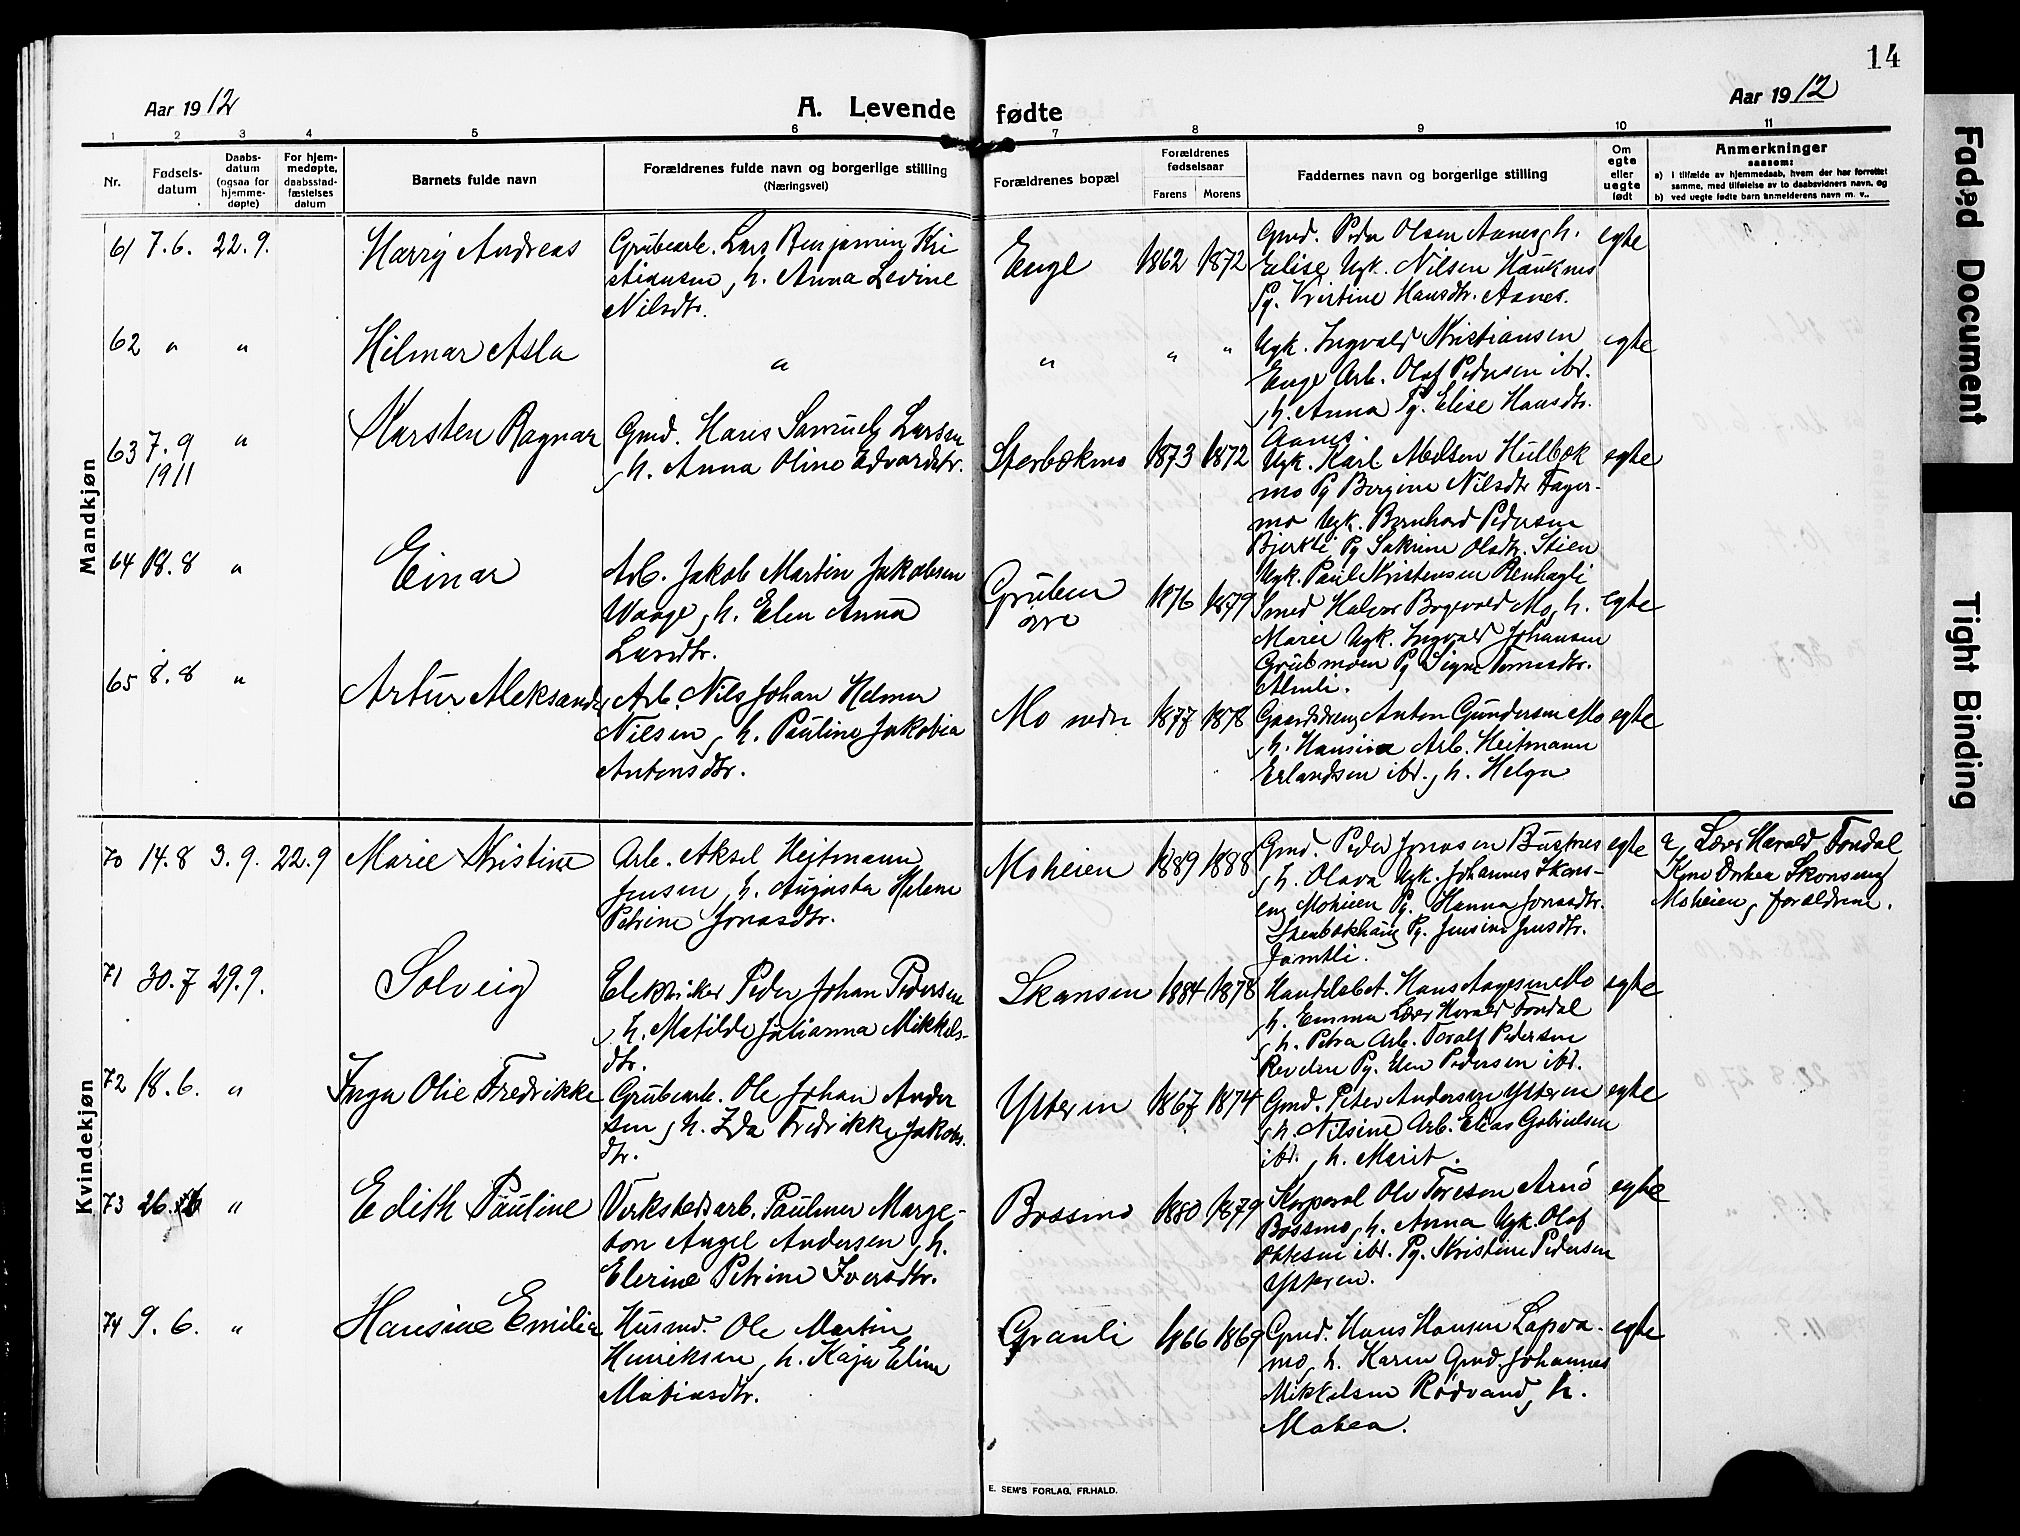 14
Aar 1912 A. Levende fødte Aar 1912
1 2 3 4 5 6 7 8 9 10 11
Nr. Fødsels-datum Daabs-datum (ogsaa for hjemme-døpte) For hjem-medøpte, daabsstad-fæstelses datum Barnets fulde navn Forældrenes fulde navn og borgerlige stilling (Næringsvei) Forældrenes bopæl Forældrenes fødselsaar Farens Morens Faddernes navn og borgerlige stilling Om egte eller uegte født Anmerkninger
saasom:
a) i tilfælde av hjemmedaab, hvem der har forrettet samme, med tilføielse av to daabsvidners navn, og
b) ved uegte fødte barn anmelderens navn m. v..
Mandkjøn
61 7.6. 22.9. Harry Andreas
Grubearb. Lars Benjamin Kri
stiansen, h. Anna Levine
Nilsdtr.
Enge 1862 1872
Gmd. Peder Olsen Aanes, h.
Elise Ugk. Nilsen Hauknes
Pg. Kristine Hansdtr. Aanes.
egte
62 " " Hilmar Asla
"
" " "
Ugk. Ingvald Kristiansen
Enge Arb. Olaf Pedersen ibd.
h. Anna Pg. Elise Hansdtr.
Aanes.
egte
63 7.9 1911 " Karsten Ragnar
Gmd. Hans Samuel Larsen
h. Anna Oline Edvardsdtr.
Stenbækmo 1873 1872
Ugk. Karl Nielsen Hulbæk
mo Pg Bergine Nilsdtr Fager-
mo Ugk. Bernhard Pedersen
Bjerkli Pg Sakrine Olsdtr. Stien
egte
64 18.8 " Einar
Arb. Jakob Martin Jakobsen
Waage, h. Elen Anna
Larsdtr.
Gruben
øvre
1876 1879
Ugk. Paul Kristensen Renhagli
Smed Halvor Mo, h.
Marie Ugk. Ingvald Johansen
Grubmoen Pg Signe Tomasdtr.
Almli.
egte
65 8.8 " Artur Aleksander
Arb. Nils Johan Helmer
Nilsen, h. Pauline Jakobia
Antonsdtr.
Mo nedre 1877 1878
Gaardsdreng Anton Gundersen Mo
h. Hansina Arb. Heitmann
Erlandsen ibd., h. Helga
egte
Kvindekjøn
70 14.8 3.9. 22.9 Marie Kristine
Arb. Aksel Heitmann
Jensen, h. Augusta Helene
Petrine Jonasdtr.
Moheien 1889 1888
Gmd. Peder Jonassen Bustnes
h. Olava Ugk. Johannes Skons-
eng Moheien Pg. Hanna Jonasdtr.
Stenbækhaug Pg. Jensine Jensdtr.
Jamtli.
egte
a, Lærer Harald Fondal
Kone Dorthea Skonseng
Moheien, forældrene.
71 30.7 29.9. Solveig
Elektriker Peder Johan Pedersen
h. Matilde Julianna Mikkels-
dtr.
Skansen 1884 1878
Handelsbet. Hans Aagesen Mo
h. Emma Lærer Harald Fondal
h. Petra Arb. Toralf Pedersen
Revelen Pg. Elen Pedersen ibd.
egte
72 18.6. " Inga Olie Fredrikke
Grubearb. Ole Johan Ander
sen, h. Ida Fredrikke Jakobs.
dtr.
Ytteren 1867 1874
Gmd. Peter Andersen Ytteren
h. Nilsine Arb. Elias Gabrielsen
ibd., h. Marit.
egte
73 26.6 " Edith Pauline
Verkstedsarb. Paulmer Marge-
ton Angel Andersen, h.
Elerine Petrine Iversdtr.
Bossmo 1880 1879
Korporal Ole Toresen Arnö
Bossmo, h. Anna Ugk. Olaf
Ottesen ibd. Pg. Kristine Pedersen
Ytteren.
egte
74 9.6. " Hansine Emilia
Husmd. Ole Martin
Henriksen, h. Kaja Eline
Matiasdtr.
Granli 1866 1869
Gmd. Hans Hansen Lapva-
mo, h. Karen Gmd. Johannes
Mikkelsen Rödvand, h.
Matea.
egte
E. SEM'S FORLAG, FR.HALD.
Faded Document
Tight Binding